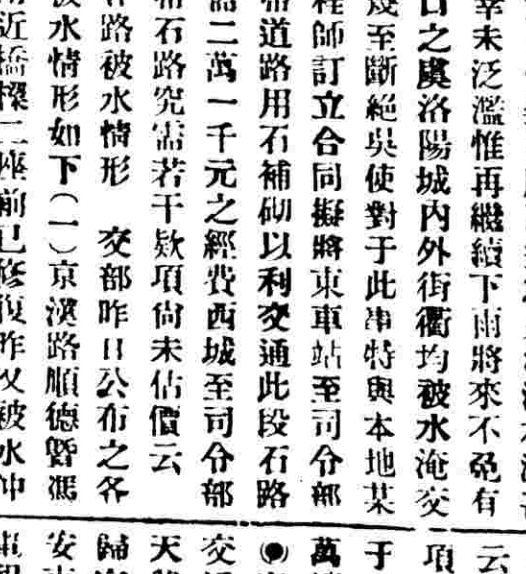 幸未泛濫惟再繼續下雨將來不免有
口之虞洛陽城內外街衢均被水淹交
幾至斷絕吳使對于此事特與本地某
程師訂立合同擬將東車站至司令部
帶道路用石補砌以利交通此段石路
需二萬一千元之經費西城至司令部
石路究需若干欵項尙未估價云
路被水情形　交部昨日公布之各
被水情形如下（一）京漢路順德暨馮
附近橋樑二座前已修復昨又被水冲
云
項
于
萬
◉
交
天
歸
安